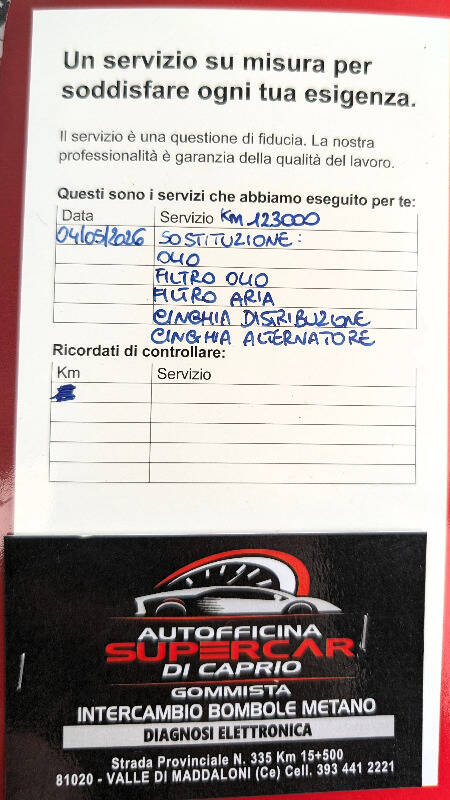 Un servizio su misura per
soddisfare ogni tua esigenza.
Il servizio è una questione di fiducia. La nostra
professionalità è garanzia della qualità del lavoro.
Questi sono i servizi che abbiamo eseguito per te:
Data Servizio Km 123000
04/05/2026 SOSTITUZIONE:
OLIO
FILTRO OLIO
FILTRO ARIA
CINGHIA DISTRIBUZIONE
CINGHIA ALTERNATORE
Ricordati di controllare:
Km Servizio
AUTOFFICINA
SUPERCAR
DI CAPRIO
GOMMISTA
INTERCAMBIO BOMBOLE METANO
DIAGNOSI ELETTRONICA
Strada Provinciale N. 335 Km 15+500
81020 - VALLE DI MADDALONI (Ce) Cell. 393 441 2221